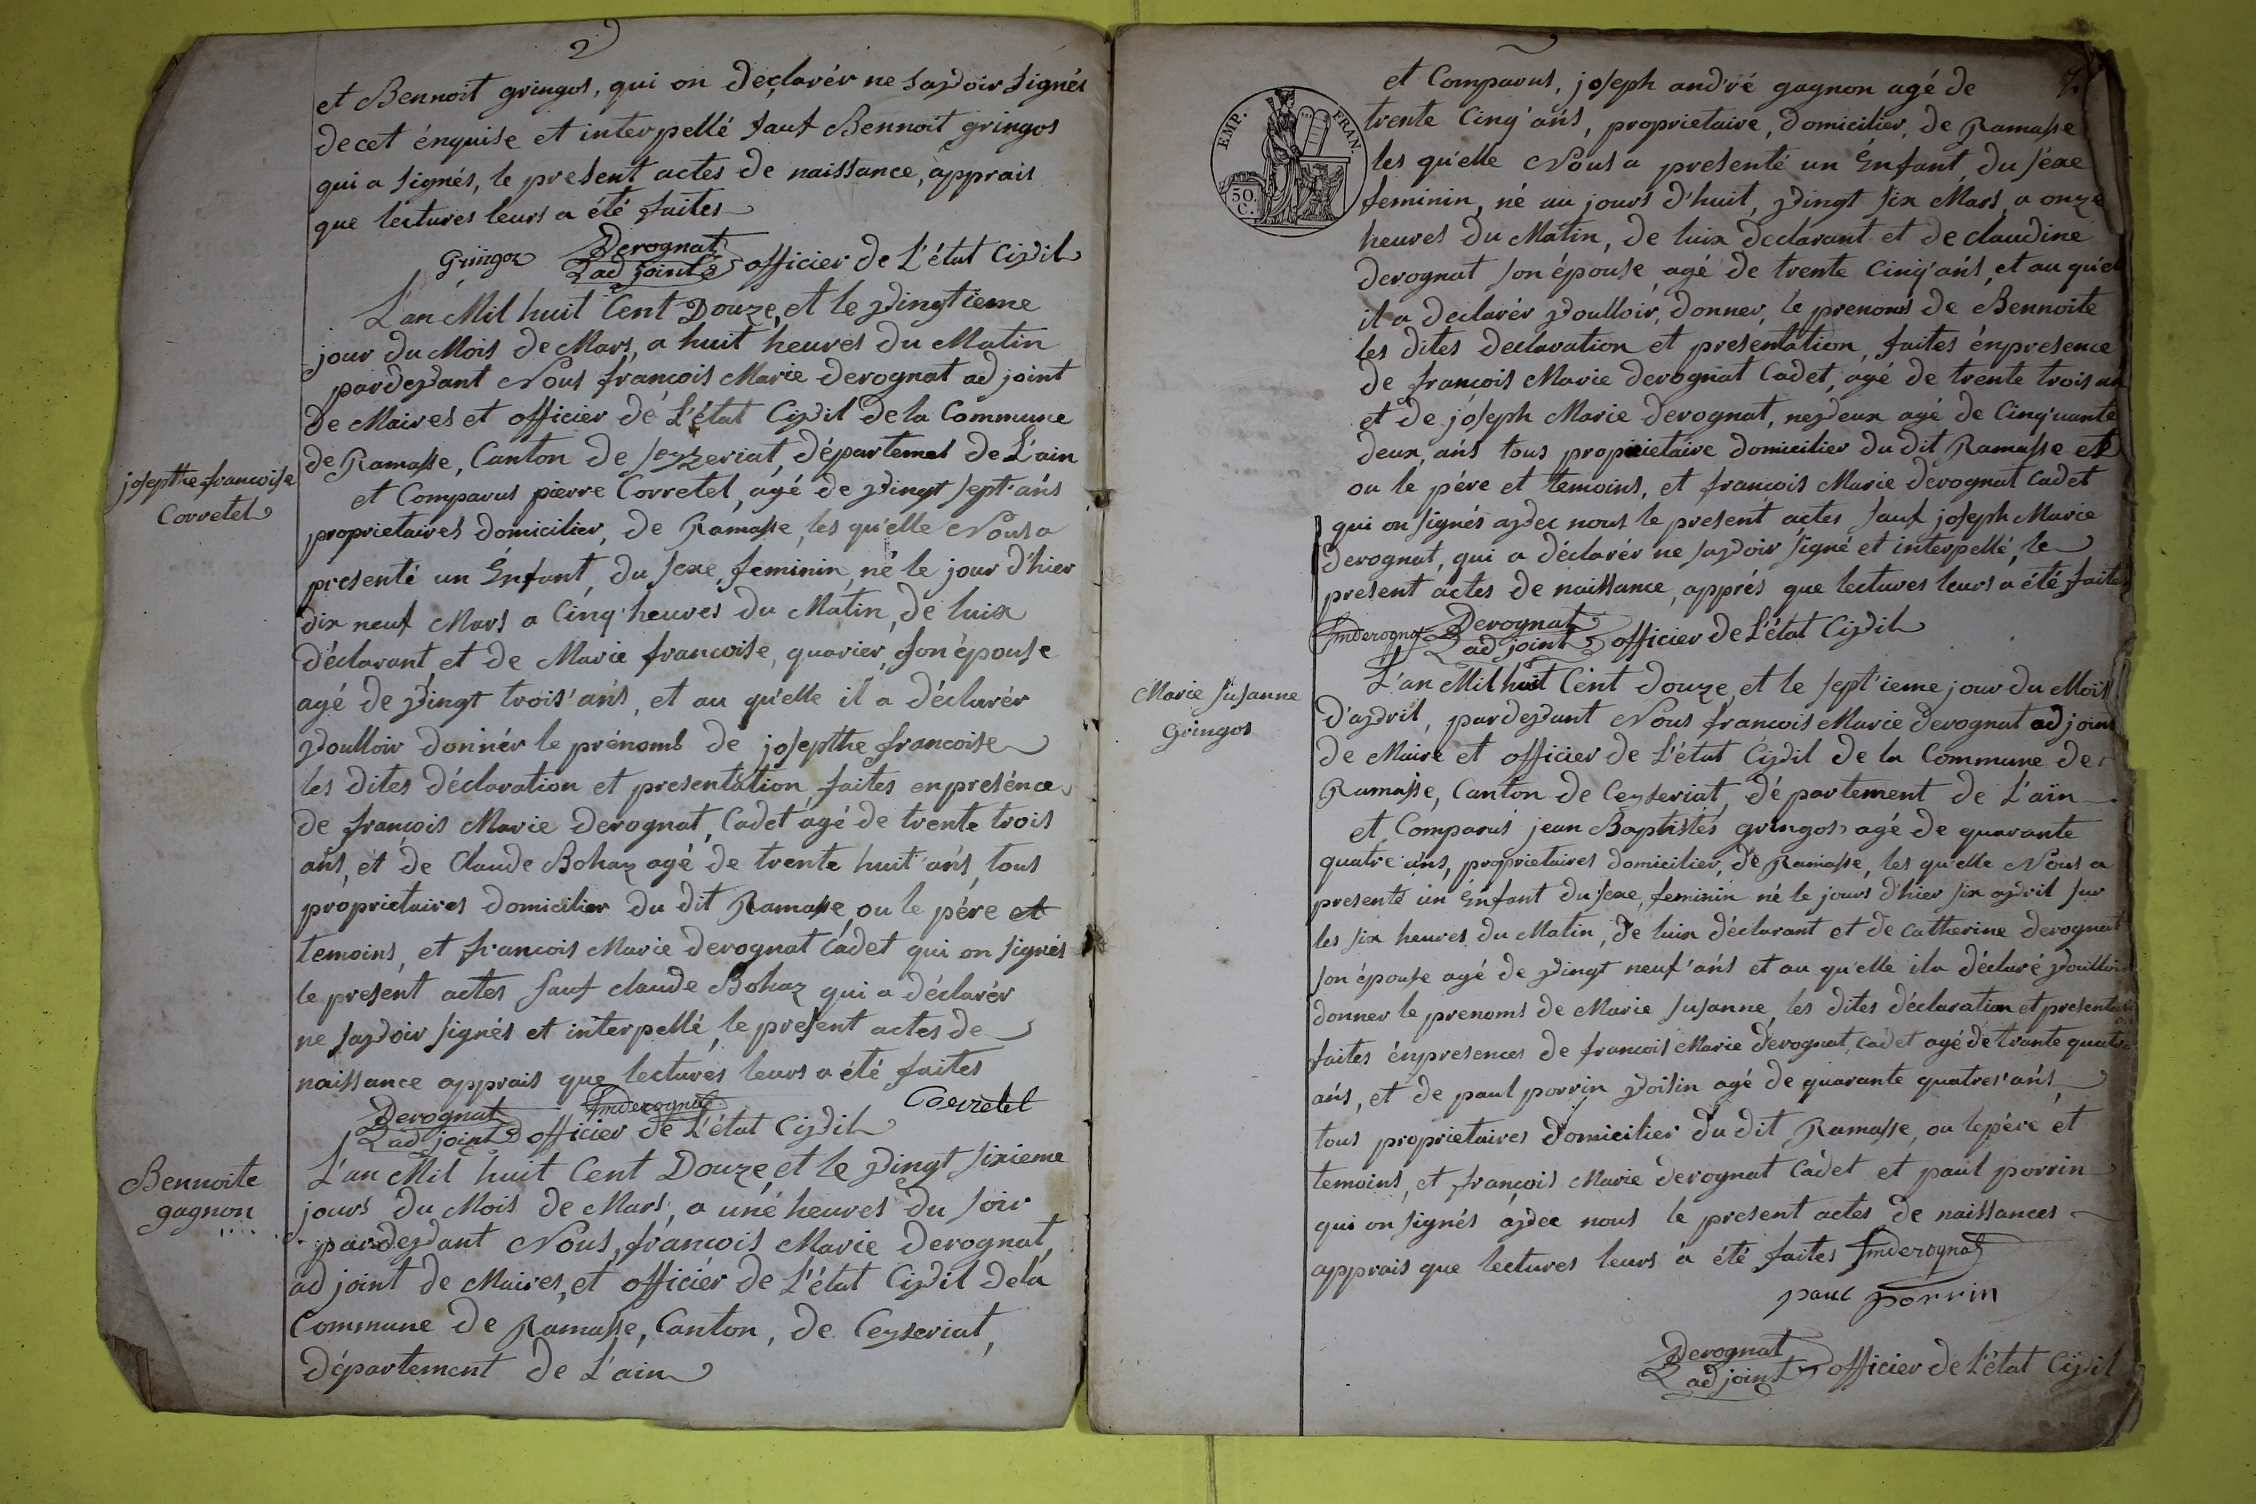 2
et Bennoit gringos, qui on declarér ne savoir signés
de cet énquise et interpellé sauf Bennoit gringos
qui a signés, le present actes de naissance, apprais
que lectures leurs a été faites
Gringoz Derognat officier de L'état Civil
adjoint
L'an Mil huit Cent Douze, et le vingtieme
jour du Mois de Mars, a huit heures du Matin
pardevant Nous francois Marie derognat adjoint
de Maires et officier de L'état Civil de la Commune
de Ramasse, Canton de Seyzeriat, départemet de L'ain
josepthe francoise
Corretel
et Comparus pierre Corretel, agé de vingt sept ans
proprietaires domicilier, de Ramasse, les qu'elle Nous a
presenté un Énfant, du sexe, feminin, né le jour d'hier
dix neuf Mars a Cinq heures du Matin, de luix
déclarant et de Marie francoise, quarier, son épouse
agé de vingt trois'ans, et au qu'elle il a déclarér
voulloir donnér le prénoms de josepthe francoise
les dites déclaration et presentation, faites en presénce
de francois Marie Derognat, Cadet agé de trente trois
ans, et de Claude Bohaz agé de trente huit ans, tous
proprietaires domicilier du dit Ramasse, ou le pére et
temoins, et francois Marie derognat Cadet qui on signés
le present actes sauf claude Bohaz qui a déclarér
ne savoir signés et interpellé, le present actes de
naissance apprais que lectures leurs a été faites
Derognat fmderognat Corretel
adjoint officier de L'état Civil
Bennoite
gagnon
L'an Mil huit Cent Douze, et le vingt sixieme
jours du Mois de Mars, a uné heures du soir
pardevant Nous, francois Marie Derognat,
adjoint de Maires, et officiér de L'état Civil de la
Commune de Ramasse, Canton, de Ceyseriat,
département de L'ain
7.
EMP. FRAN.
50.
C.
et Comparus, joseph andré gagnon agé de
trente Cinq'ans, proprietaire, domicilier, de Ramasse
les qu'elle Nous a presenté un Énfant, du séxe
feminin, né au jours d'huit, vingt six Mars, a onze
heures du Matin, de luix declarant et de claudine
derognat son épouse, agé de trente Cinq'ans, et au qu'el
il a declarér voulloir, donner, le prenoms de Bennoite
les dites declaration et presentation, faites énpresence
de francois Marie derognat Cadet, agé de trente trois an
et de joseph Marie derognat, neveux agé de Cinq'uante
deux, ans tous proprietaire domicilier du dit Ramasse et
ou le pére et temoins, et francois Marie derognat Cadet
qui on signés avec nous le present actes sauf joseph Marie
derognat, qui a déclarér ne savoir signé et interpellé, le
present actes de naissance, apprés que lectures leurs a été faites
fmderognat Derognat
adjoint officier de L'état Civil
Marie susanne
gringos
L'an Mil huit Cent douze, et le sept'ieme jour du Mois
d'avril, pardevant Nous francois Marie derognat adjoint
de Maire et officier de L'état Civil de la Commune de
Ramasse, Canton de Ceyseriat, département de L'ain
et Comparus jean Baptistes gringos agé de quarante
quatre ans, proprietaires domicilier, de Ramasse, les qu'elle Nous a
presenté un Énfant du sexe, feminin né le jours d'hier six avril sur
les six heures du Matin, de luix déclarant et de catherine derognat
son épouse agé de vingt neuf'ans et au qu'elle il a déclaré voulloir
donner le prenoms de Marie susanne, les dites déclaration et presentation
faites énpresences de francois Marie derognat, cadet agé de trante quatre
ans, et de paul porrin voisin agé de quarante quatres'ans,
tous proprietaires domicilier du dit Ramasse, ou le pére et
temoins, et francois Marie derognat Cadet et paul porrin
qui on signés avec nous le present actes de naissances
apprais que lectures leurs a été faites fmderognat
paul porrin
Derognat
adjoint officier de L'état Civil